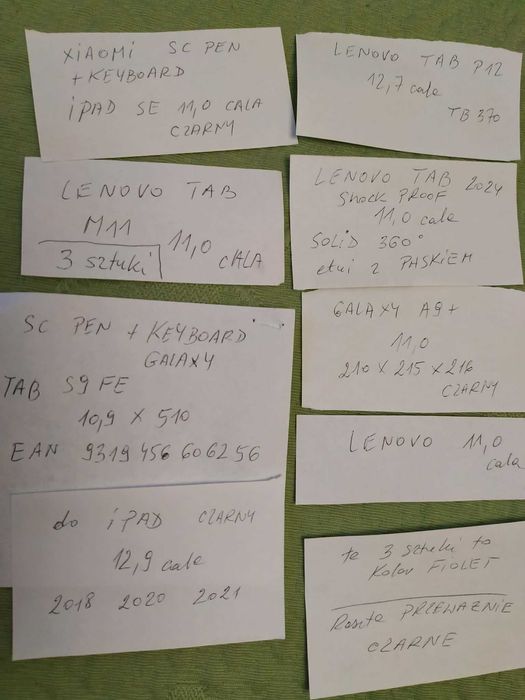 XIAOMI SC PEN
+ KEYBOARD
iPAD SE 11,0 CALA
CZARNY
LENOVO TAB P12
12,7 cale
TB 370
LENOVO TAB
M11
3 sztuki
11,0
cALA
LENOVO TAB 2024
Shock PROOF
11,0 cale
SOLiD 360°
etui z PASKiEM
SC PEN + KEYBOARD
GALAXY
TAB S9 FE
10,9 x 510
EAN 9319 456 606256
GALAXY A9+
11,0
210 x 215 x 216
CZARNY
LENOVO 11,0
cala
do iPAD CZARNY
12,9 cale
2018 2020 2021
te 3 sztuki to
Kolor FIOLET
Reszta PRZEWAZNIE
CZARNE